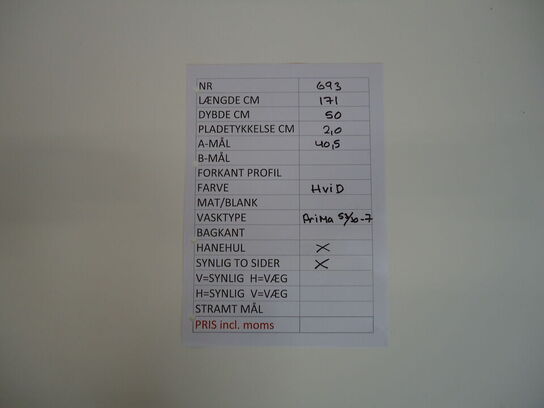 NR 693
LÆNGDE CM 171
DYBDE CM 50
PLADETYKKELSE CM 2,0
A-MÅL 40,5
B-MÅL
FORKANT PROFIL
FARVE HviD
MAT/BLANK
VASKTYPE PriMa -7
BAGKANT
HANEHUL X
SYNLIG TO SIDER X
V=SYNLIG H=VÆG
H=SYNLIG V=VÆG
STRAMT MÅL
PRIS incl. moms